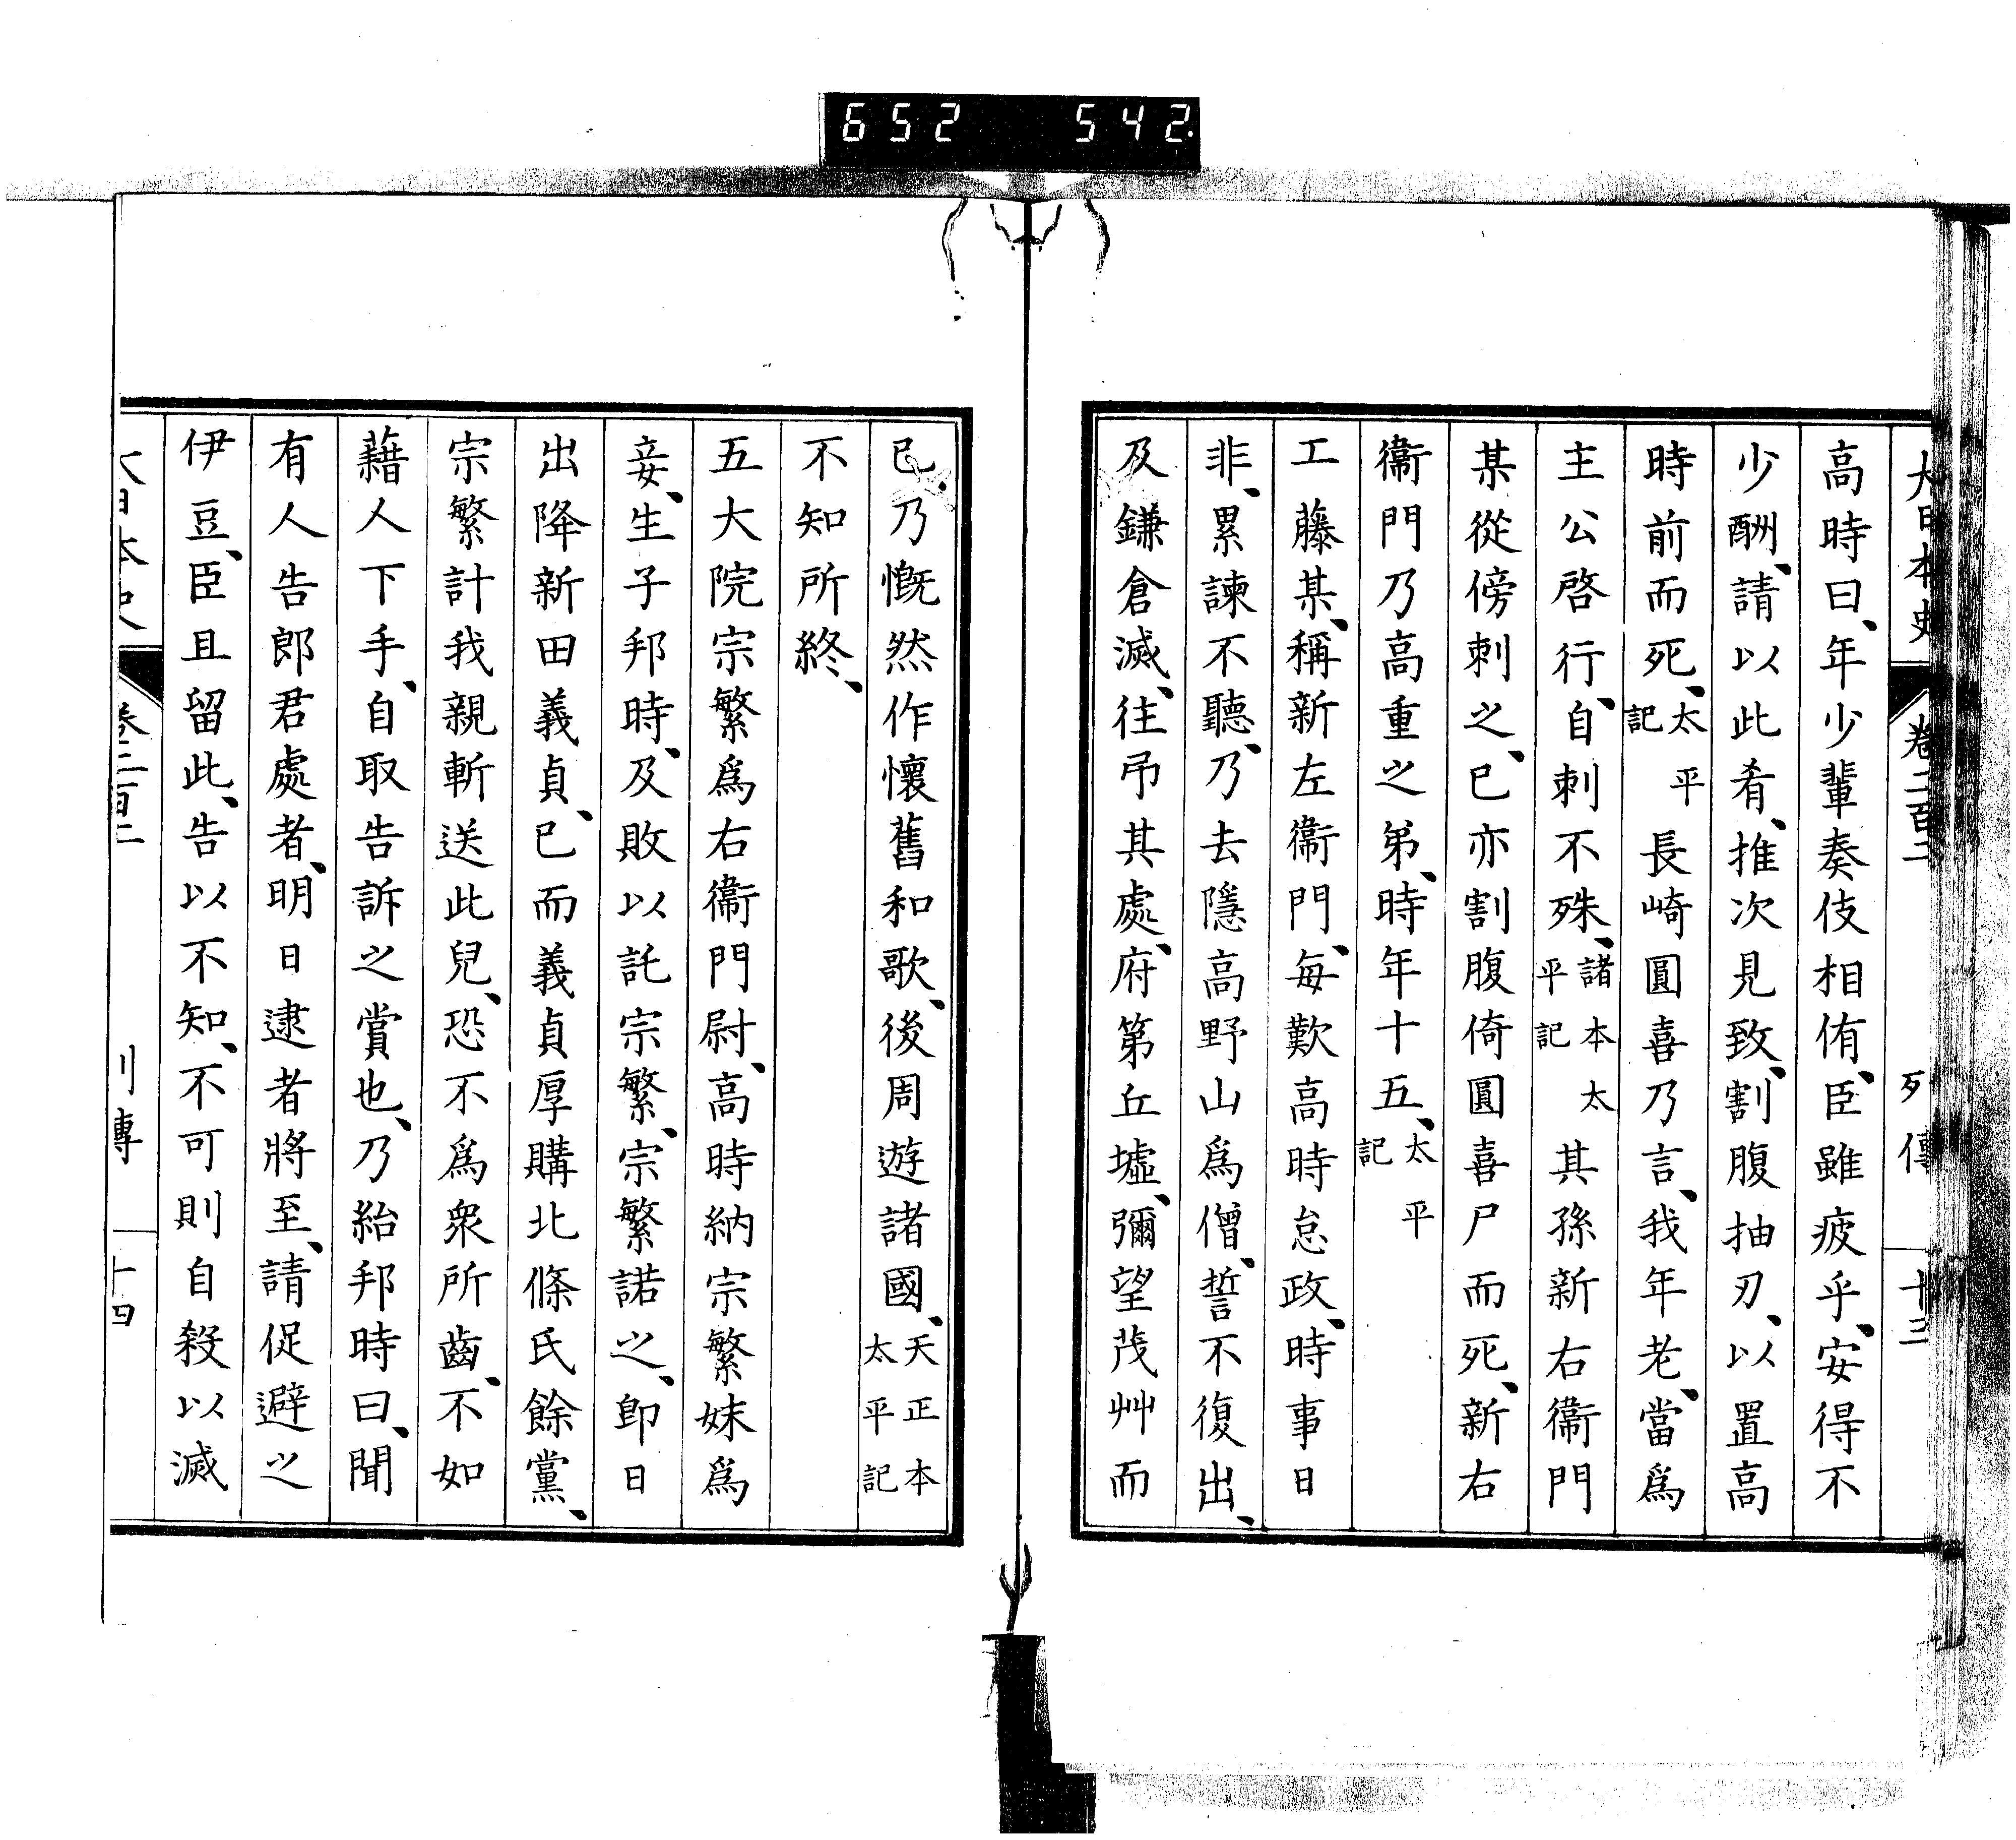 652 542.
大日本史 卷二百二 列傳 十三
高時曰、年少輩奏伎相侑、臣雖疲乎、安得不
少酬、請以此肴、推次見致、割腹抽刃、以置高
時前而死、太平記長崎圓喜乃言、我年老、當爲
主公啓行、自刺不殊、諸本太平記其孫新右衞門
某從傍刺之、已亦割腹倚圓喜尸而死、新右
衞門乃高重之弟、時年十五、太平記
工藤某、稱新左衞門、每歎高時怠政、時事日
非、累諫不聽、乃去隱高野山爲僧、誓不復出、
及鎌倉滅、往弔其處、府第丘墟、彌望茂艸而
已、乃慨然作懷舊和歌、後周遊諸國、天正本太平記
不知所終、
五大院宗繁爲右衞門尉、高時納宗繁妹爲
妾、生子邦時、及敗以託宗繁、宗繁諾之、卽日
出降新田義貞、已而義貞厚購北條氏餘黨、
宗繁計我親斬送此兒、恐不爲衆所齒、不如
藉人下手、自取告訴之賞也、乃紿邦時曰、聞
有人告郎君處者、明日逮者將至、請促避之
伊豆、臣且留此、告以不知、不可則自殺以滅
大日本史 卷二百二 列傳 十四